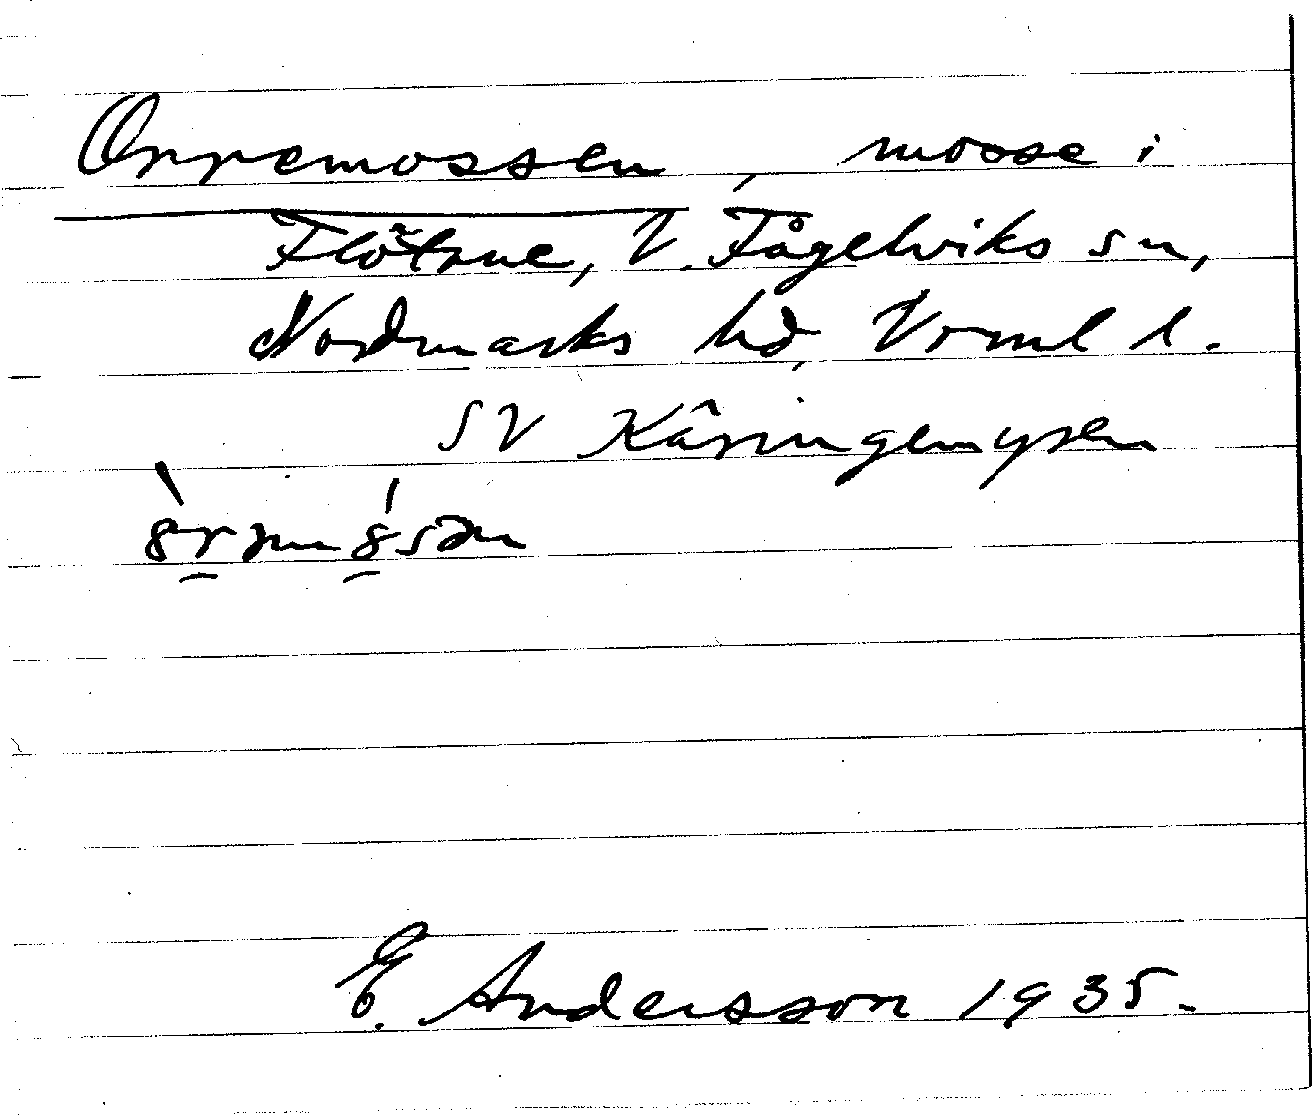 Orremossen, mosse i
Flötane, V. Fågelviks sn,
Nordmarks hd, Vrml l.
SV Käringemyren
E. Andersson 1935.